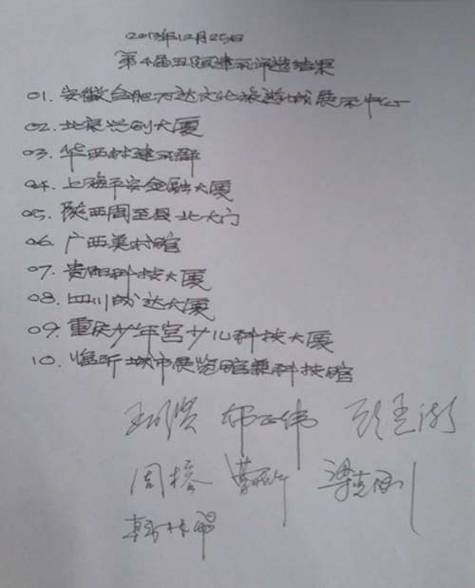 2013年12月25日
第4届丑陋建筑评选结果
01.安徽合肥万达文化旅游城展示中心
02.北京兴创大厦
03.华西村建筑群
04.上海平安金融大厦
05.陕西周至县北大门
06.广西美术馆
07.贵阳科技大厦
08.四川的达大厦
09.重庆少年宫少儿科技大厦
10.临沂城市展览馆兼科技馆
周榕